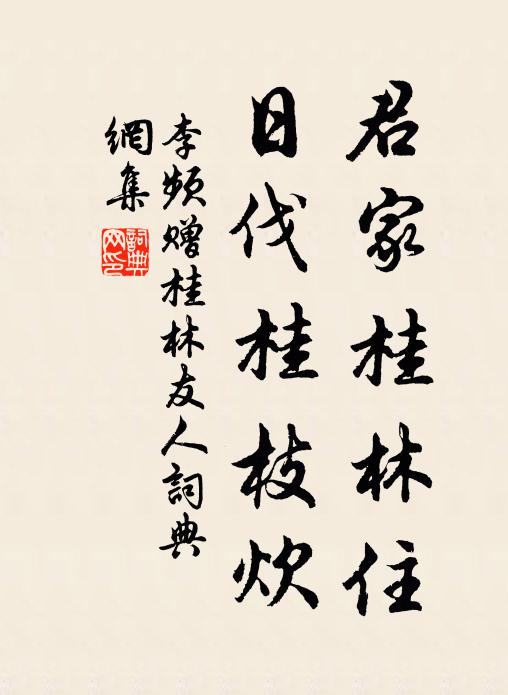 君家桂林住
日伐桂枝炊
李频贈桂林友人詞典
網集
詞典
网印